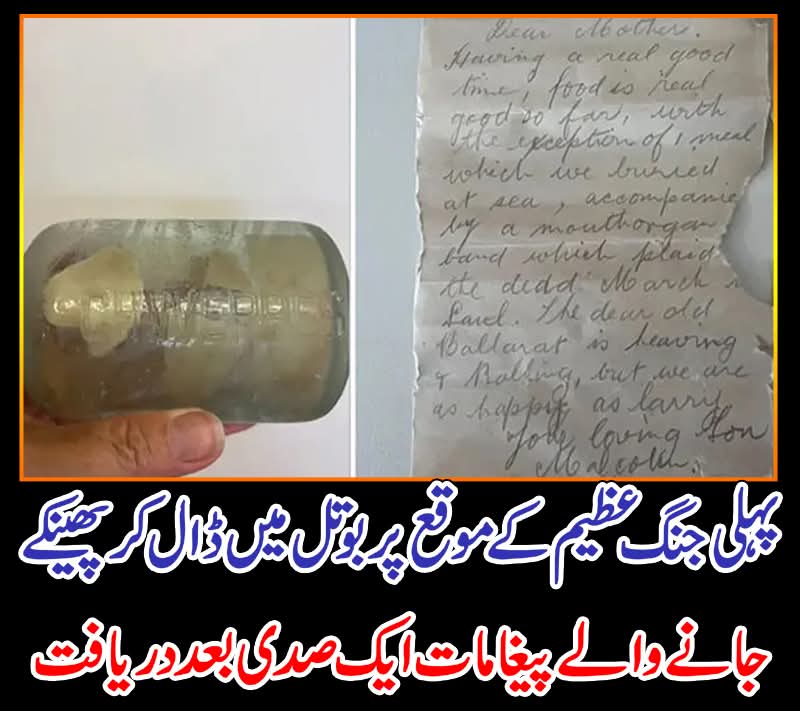 Dear Mother.
Having a real good
time, food is real
good so far, with
the exception of 1 meal
which we buried
at sea, accompanie
by a mouthorgan
band which plaid
the dedd March
Saul. The dear old
Ballarat is heaving
& Rolling, but we are
as happy as larry
Your loving Son
Malcolm.
پہلی جنگ عظیم کے موقع پر بوتل میں ڈال کر پھینکے
جانے والے پیغامات ایک صدی بعد دریافت